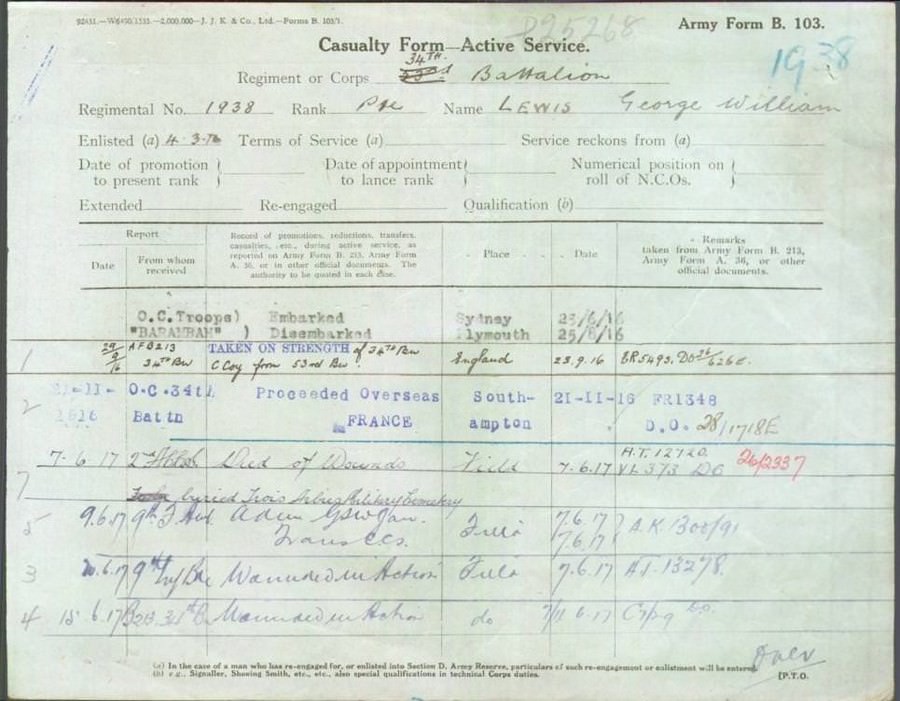 92831.—W6490/1533.—2,000,000—J. J. K. & Co., Ltd.—Forms B. 103/1.
Army Form B. 103.
1938
Casualty Form—Active Service.
34TH.
Regiment or Corps Battalion
Regimental No. 1938 Rank Pte Name LEWIS George William
Enlisted (a) 4.3.16 Terms of Service (a) Service reckons from (a)
Date of promotion to present rank
Date of appointment to lance rank
Numerical position on roll of N.C.Os.
Extended Re-engaged Qualification (b)
Report
Date
From whom received
Record of promotions, reductions, transfers, casualties, etc., during active service, as reported on Army Form B. 213, Army Form A. 36, or in other official documents. The authority to be quoted in each case.
Place
Date
Remarks
taken from Army Form B. 213, Army Form A. 36, or other official documents.
O.C.Troops) Embarked Sydney 23/6/16
"BARAMBAH" ) Disembarked Plymouth 25/8/16
1 29/9/16 AFB213 34TH Bn TAKEN ON STRENGTH of 34TH Bn England 23.9.16
C Coy from 53rd Bn
2 21-11-1916 O.C.34th Battn Proceeded Overseas FRANCE South-ampton 21-11-16 FR1348
D.O. 28/1718E
7 7-6-17 Died of Wounds Field 7-6-17 A.T. 12720. 26/2337
buried Trois Arbres Military Cemetery
5 9.6.17 9th F. Amb. Adm GSW Jaw. Field 7.6.17 A.K 1300/91
Trans CCS. 7.6.17
3 9th Inf Bde Wounded in Action Field 7.6.17 A.T. 13278.
4 15.6.17 B213 34th B Wounded in Action do
Over
(a) In the case of a man who has re-engaged for, or enlisted into Section D, Army Reserve, particulars of such re-engagement or enlistment will be entered.
(b) e.g., Signaller, Shoeing Smith, etc., etc., also special qualifications in technical Corps duties.
[P.T.O.